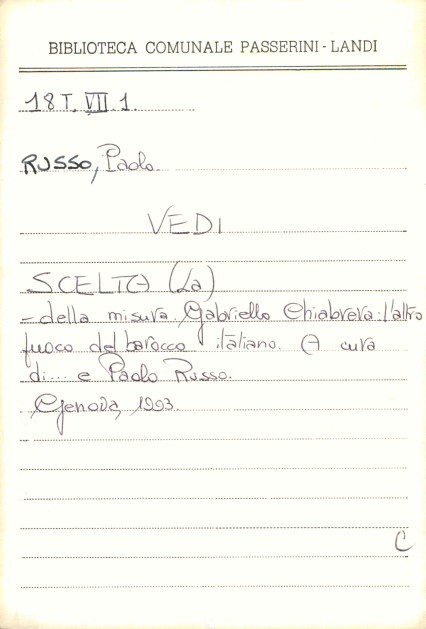 BIBLIOTECA COMUNALE PASSERINI - LANDI
18 T. VII 1.
RUSSO, Paolo.
VEDI
SCELTA (La)
- della misura. Gabriello Chiabrera: l'altro
fuoco del barocco italiano. A cura
di.... e Paolo Russo.
Genova, 1993.
C